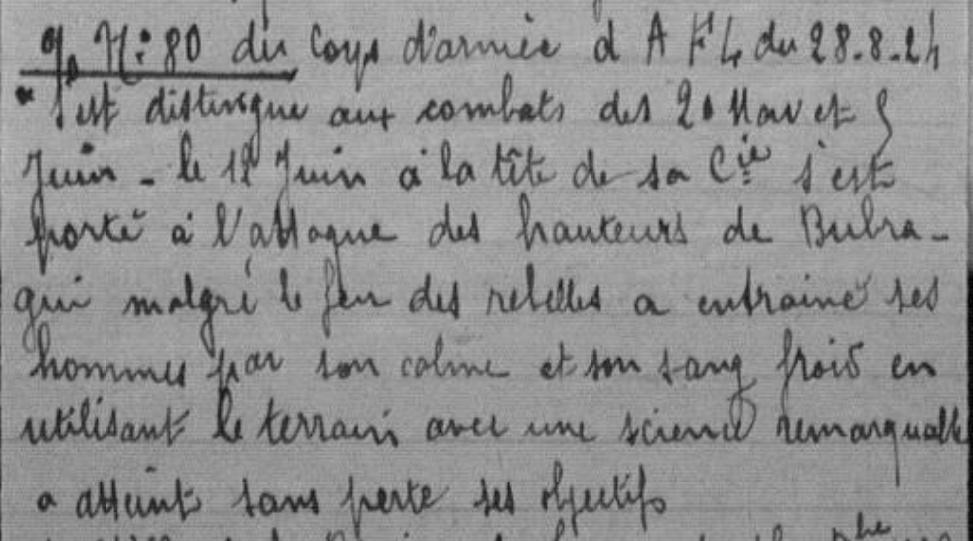 q. N: 80 du Corps d'armée d A F L du 28.8.24
" S'est distingué aux combats des 20 Mav et 5
Juin - le 12 Juin à la tête de sa Cie s'est
porté à l'attaque des hauteurs de Bubra-
qui malgré le feu des rebelles a entrainé ses
hommes par son calme et son sang froid en
utilisant le terrain avec une science remarquable
a atteint sans perte ses objectifs